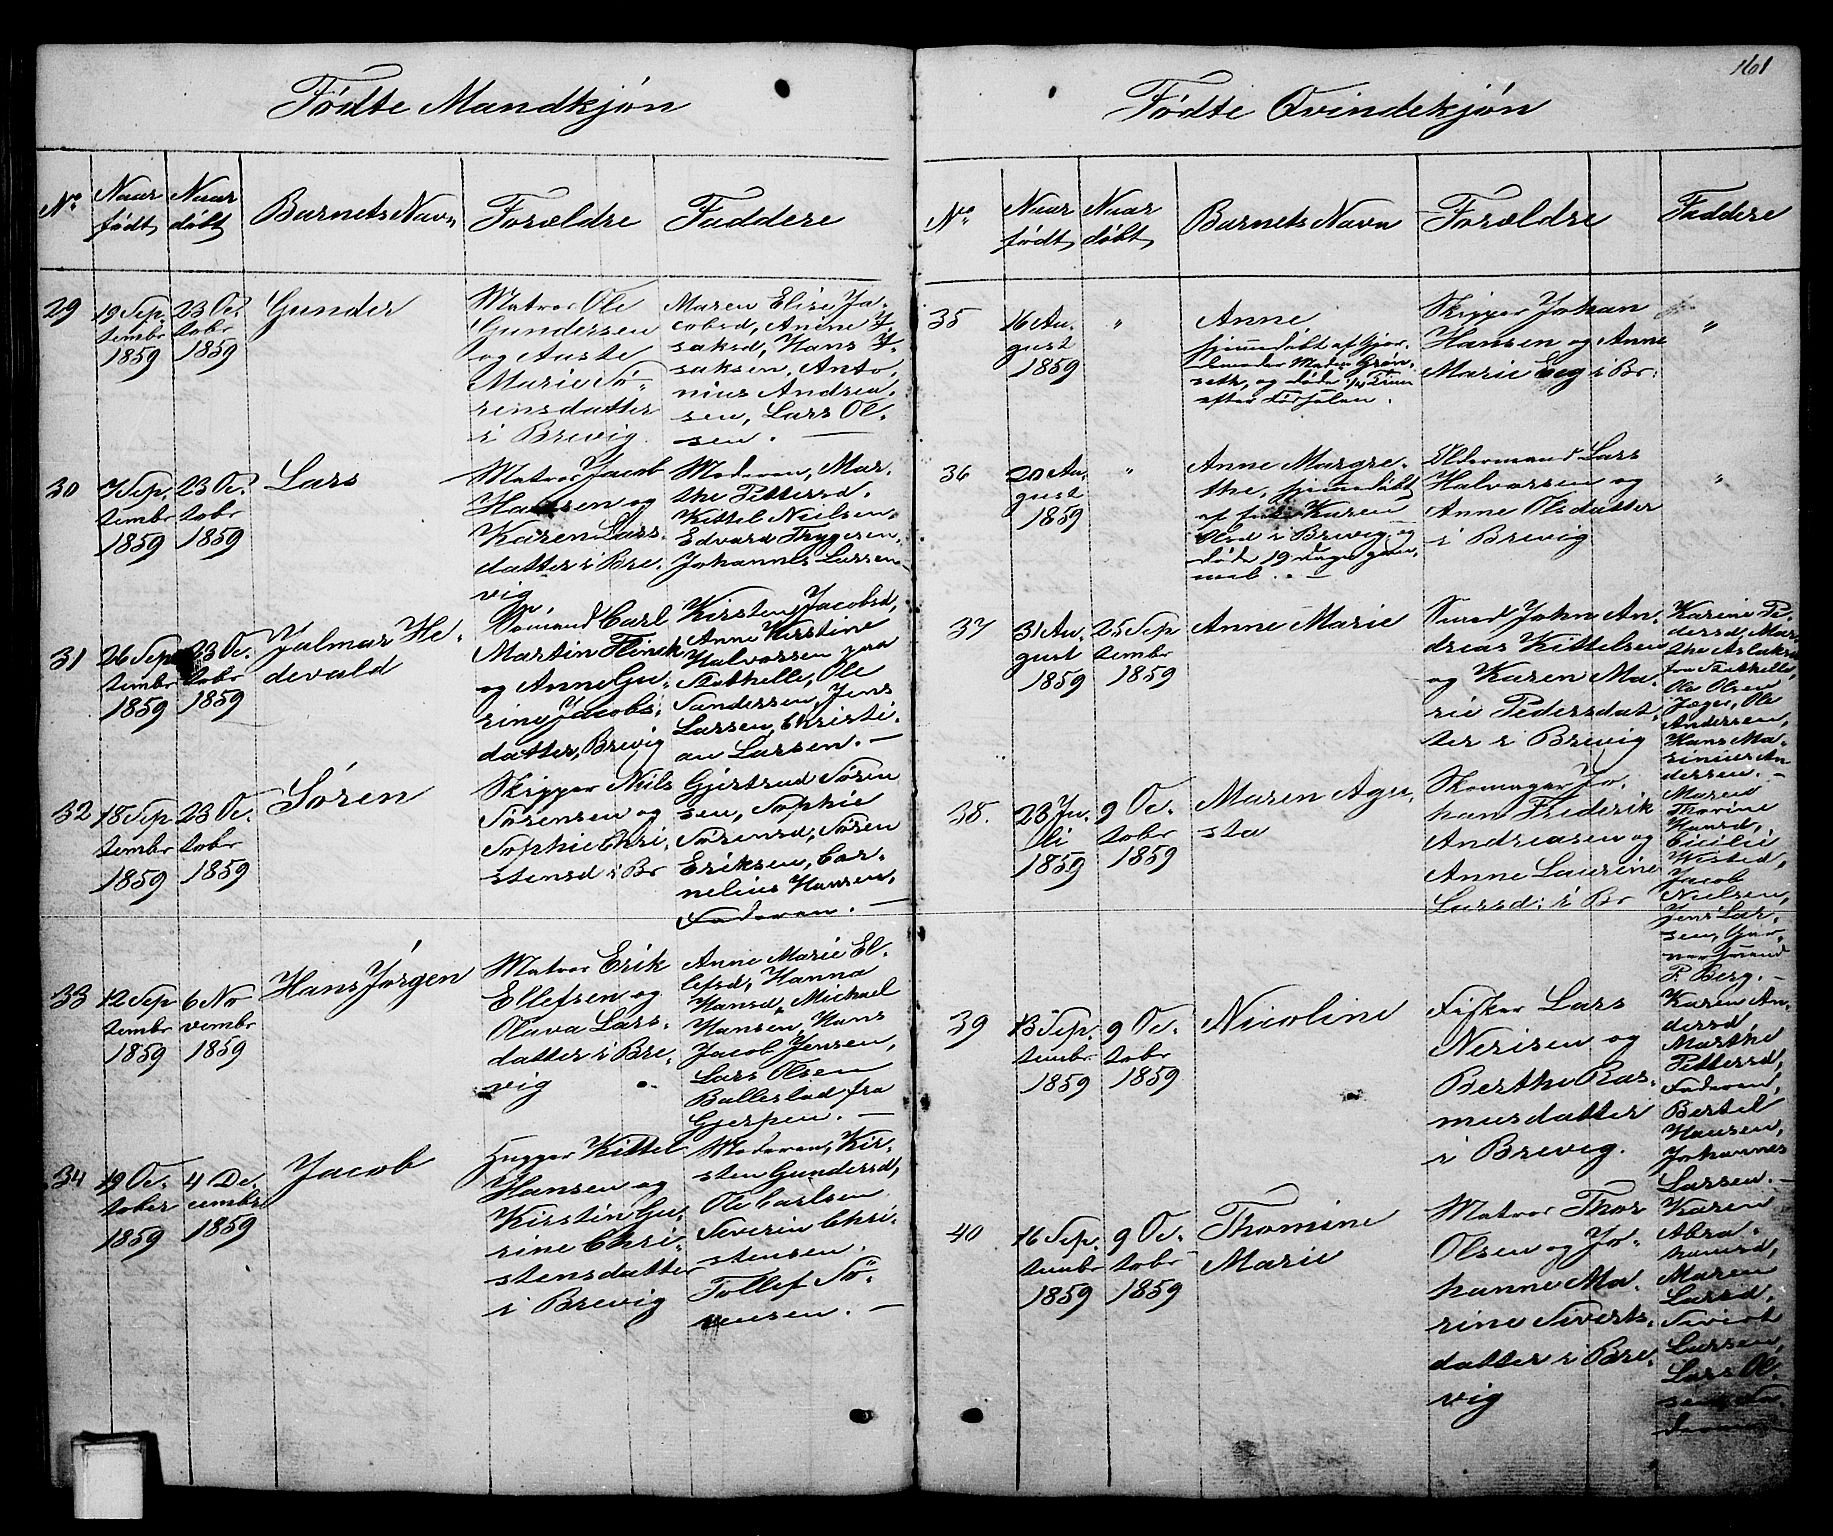 Fødte Mandkjøn
No
Naar født
Naar døbt
Barnets Navn
Forældre
Faddere
29
19 Sep-
tembr
1859
23 Oc-
tobr
1859
Gunder
Matros Ole
Gundersen
og Aaste
Marie Sø-
rensdatter
i Brevig
Maren Elise Ja-
cobsd, Anne I-
saksd, Hans I-
saksen, Anto-
nius Andrea-
sen, Lars Ol-
sen.
30
7 Sep-
tembr
1859
23 Oc-
tobr
1859
Lars
Matros Jacob
Hansen og
Karen Lars-
datter i Bre-
vig
Moderen, Mar-
the Pettersd.
Kittel Nielsen
Edvard Trygesen
Johannes Larsen
31
26 Sep
tembr
1859
23 Oc-
tobr
1859
Jalmar He-
devald
Carl
Martin Flink
og Anne Gu-
rine Jacobs-
datter, Brevig
Kirsten Jacobsd,
Anne Kirstine
Halvorsen paa
Stathelle, Ole
Sandersen, Jens
Larsen, Christi-
an Larsen.
32
18 Sep
tembr
1859
23 Oc-
tobr
1859
Søren
Skipper Niels
Sørensen og
Sophie Chri-
stensd i Br
Gjertrud Søren
sen, Sophie
Sørensd, Søren
Eriksen, Cor-
nelius Hansen,
Faderen.
33
12 Sep
tembr
1859
6 No
vembr
1859
Hans Jørgen
Matros Erik
Ellefsen og
Olava Lars-
datter i Bre-
vig
Anne Marie El-
lefsd, Hanna
Hansd, Michael
Hansen, Hans
Jacob Jensen,
Lars Olsen
Ballestad fra
Gjerpen.
34
19 Oc-
tober
1859
4 De-
cembr
1859
Jacob
Kittel
Hansen og
Kirstin Gu-
rine Chri-
stensdatter
i Brevig
Moderen, Kir-
sten Gundersd,
Ole Carlsen
Severin Chri-
stensen.
Tollef Sø-
rensen.
161
Fødte Qvindekjøn
No
Naar født
Naar døbt
Barnets Navn
Forældre
Faddere
35
16 Au-
gust
1859
"
Anne
hjemmedøbt af Gjor-
demoder Madm Grøn-
seth, og døde 1/4 Time
efter Forløsn.
Skipper Johan
Hansen og Anne
Marie Eeg i Br:
"
36
20 Au-
gust
1859
"
Anne Margre-
the, hjemmedøbt
af Karen
Olsd i Brevig, og
døde 19 dage gam-
mel.
Oldermand Lars
Halvorsen og
Anne Olsdatter
i Brevig
"
37
31 Au-
gust
1859
25 Sep
tembr
1859
Anne Marie
Smed John An-
dreas Kittelsen
og Karen Ma-
rie Pedersdat-
ter i Brevig
Karine Pe-
dersd, Mar-
the Aslaksd
fra Stathelle,
Ole Olsen
Jæger, Ole
Andersen,
Hans Ma-
rinius An-
dersen.
38.
23 Ju-
li
1859
9 Oc-
tobr
1859
Maren Agu-
sta
Skomager Jo-
han Frederik
Andreasen og
Anne Laurine
Larsd: i Br
Maren
Thorine
Hansd,
Cicilie
Wisted,
Jacob
Nielsen,
Jens Lar-
sen, Gar-
versvend
P. Berg.
39
13 Sep-
tembr
1859
9 Oc-
tobr
1859
Nicoline
Fisker Lars
Nerisen og
Berthe Ras-
musdatter
i Brevig.
Karen An-
dersd,
Marthe
Pettersd,
Faderen,
Bertel
Hansen,
Johannes
Larsen.
40
16 Sep-
tembr
1859
9 Oc-
tobr
1859
Thomine
Marie
Matros Thor
Olsen og Jo-
hanne Ma-
rine Siverts-
datter i Bre-
vig
Karen
Abra-
hamsd,
Maren
Larsd.
Sivert
Larsen,
Lars Ol-
sen, Fa-
deren